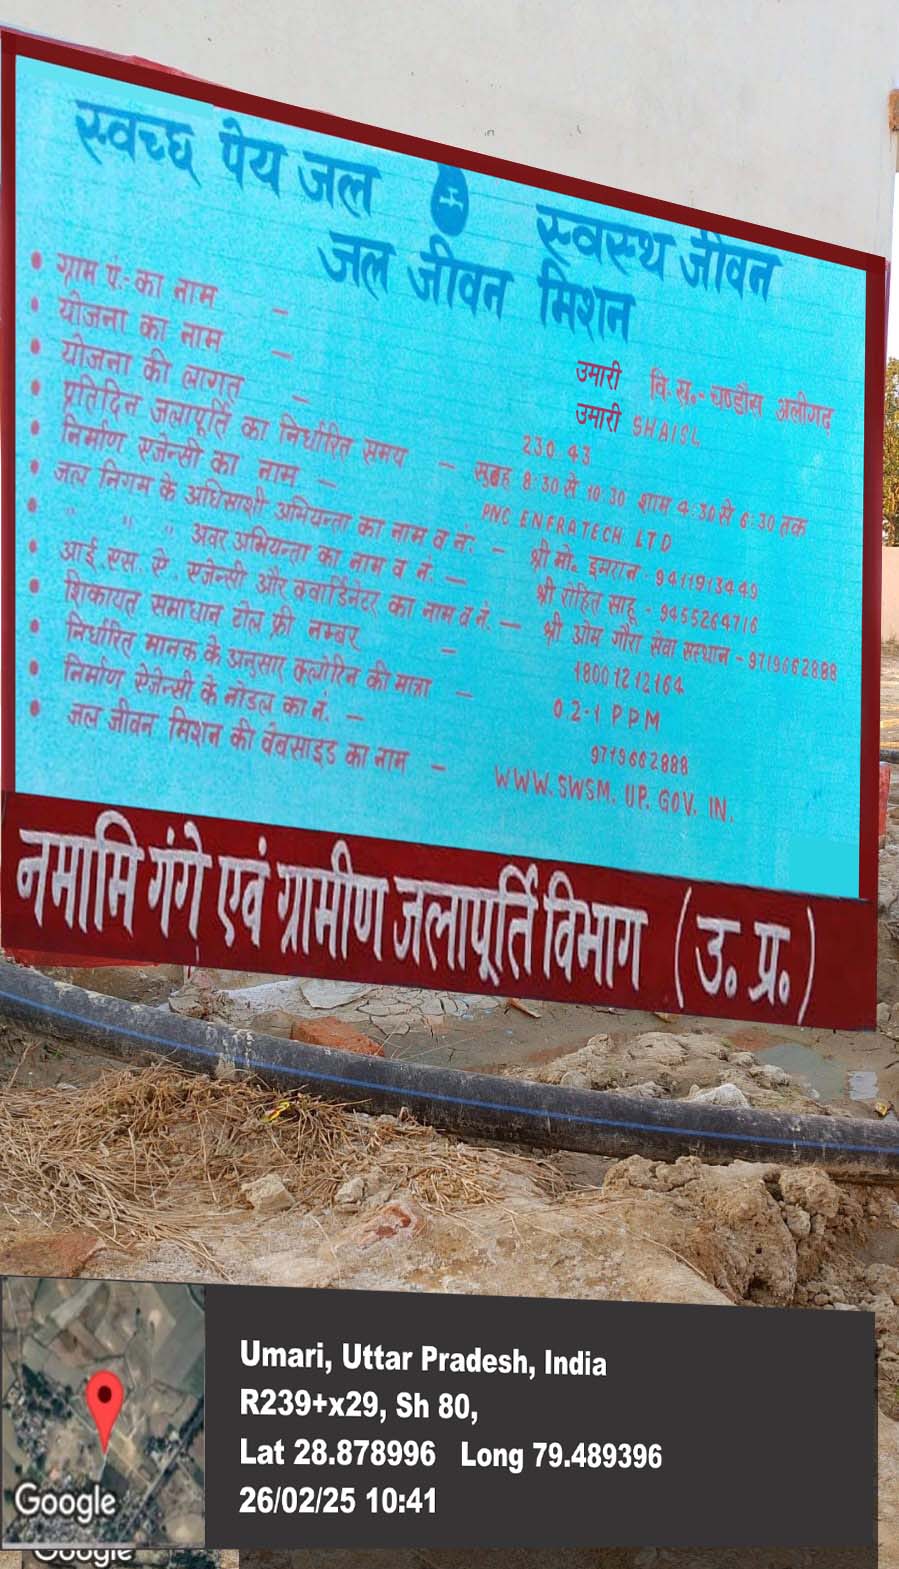 स्वच्छ पेय जल स्वस्थ जीवन
जल जीवन मिशन
• ग्राम पं:- का नाम - उमारी वि. ख.- चण्डौस अलीगढ़
• योजना का नाम - उमारी SHAISL
• योजना की लागत - 230.43
• प्रतिदिन जलापूर्ति का निर्धारित समय - सुबह 8:30 से 10:30 शाम 4:30 से 6:30 तक
• निर्माण एजेन्सी का नाम - PNC ENFRATECH LTD
• जल निगम के अधिसाशी अभियन्ता का नाम व नं: - श्री मो. इमरान - 9411913449
" " " अवर अभियन्ता का नाम व नं. - श्री रोहित साहू - 9455264716
• आई. एस. ऐ. एजेन्सी और क्वार्डिनेटर का नाम व नं. - श्री ओम गौरा सेवा सस्थान - 9719662888
• शिकायत समाधान टोल फ्री नम्बर - 18001212164
• निर्धारित मानक के अनुसार क्लोरिन की मात्रा - 0.2-1 PPM
• निर्माण ऐजेन्सी के नोडल का नं. - 9719662888
• जल जीवन मिशन की वेबसाइड का नाम - WWW.SWSM.UP.GOV.IN.
नमामि गंगे एवं ग्रामीण जलापूर्ति विभाग (उ. प्र.)
Umari, Uttar Pradesh, India
R239+x29, Sh 80,
Lat 28.878996 Long 79.489396
26/02/25 10:41
Google
Google